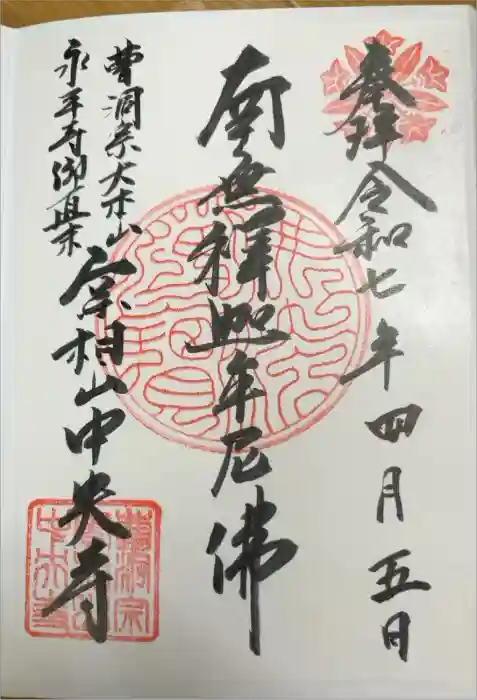 奉拝 令和七年四月五日
南無釋迦牟尼佛
曹洞宗大本山
永平寺御直末
宗相山中央寺